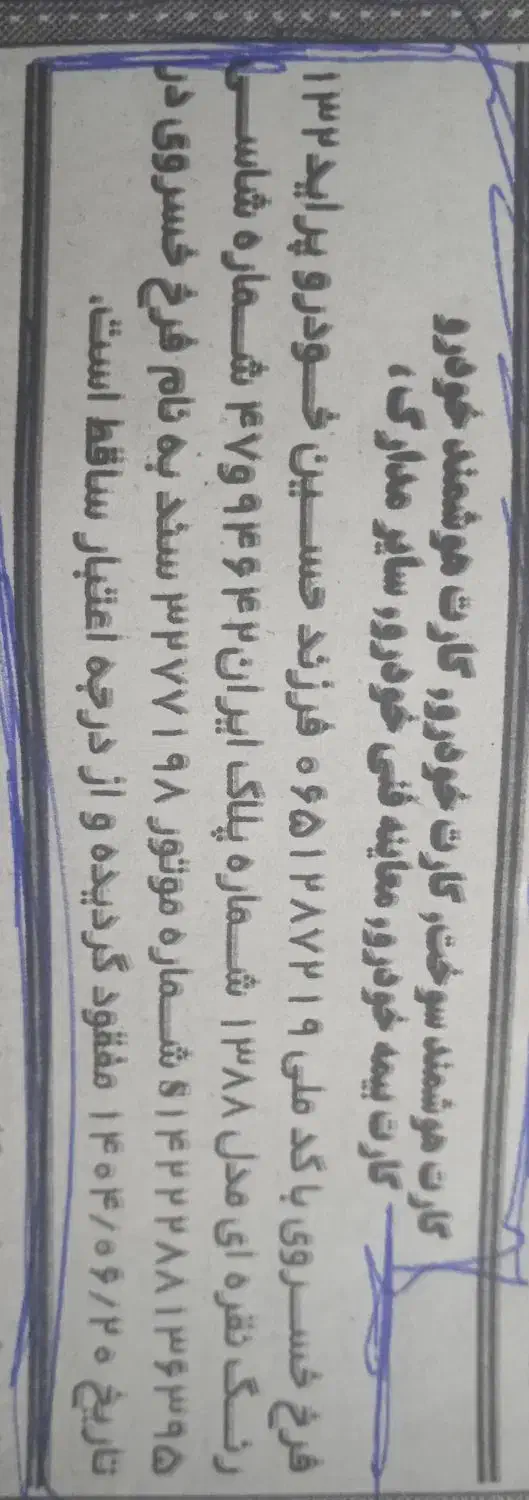 کارت هوشمند سوخت، کارت خودرو، کارت هوشمند خودرو
کارت بیمه خودرو، معاینه فنی خودرو، سایر مدارک،
فرخ خسروی با کد ملی ۰۶۵۱۲۸۷۲۱۹ فرزند حسین خودرو پراید ۱۳۲
رنگ نقره ای مدل ۱۳۸۸ شماره پلاک ایران ۴۲ ۹۴۶ و ۴۷ شماره شاسی
S۱۴۲۲۲۸۸۱۳۶۳۹۵ شماره موتور ۳۲۷۷۱۹۸ سند به نام فرخ خسروی در
تاریخ ۱۴۰۴/۰۶/۲۰ مفقود گردیده و از درجه اعتبار ساقط است.